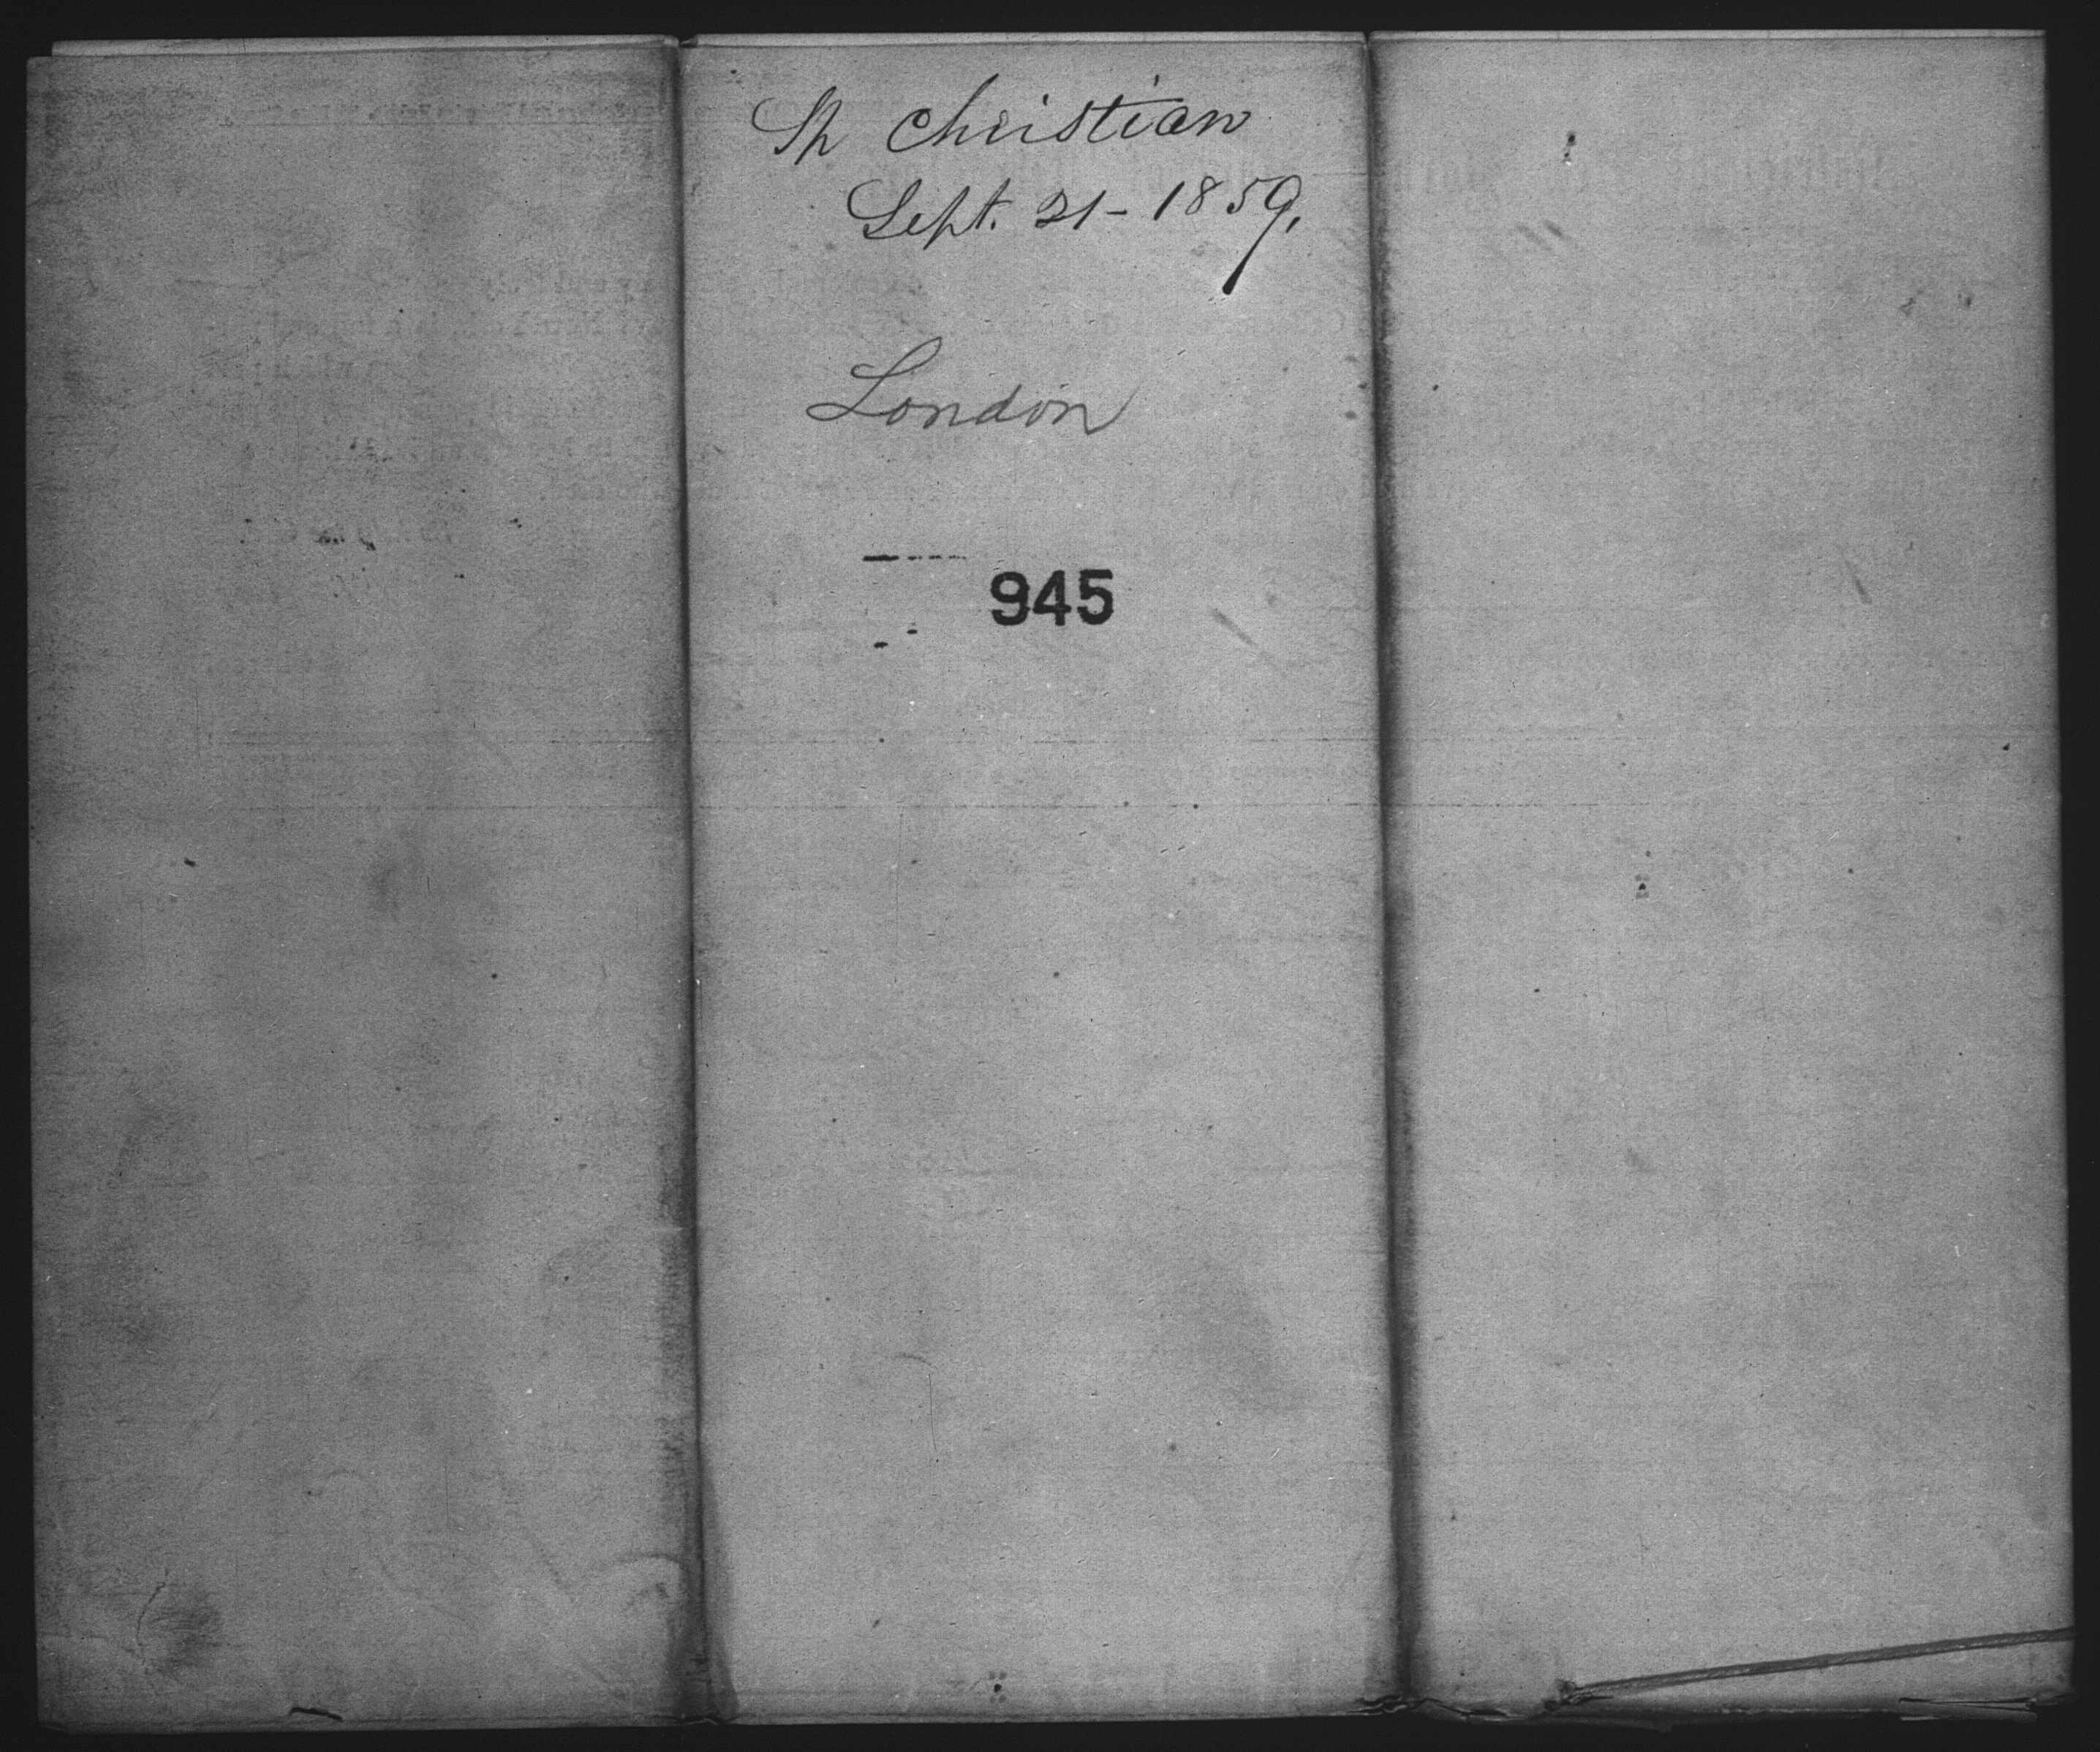 Sp Christian
Sept. 21 - 1859,
London
945